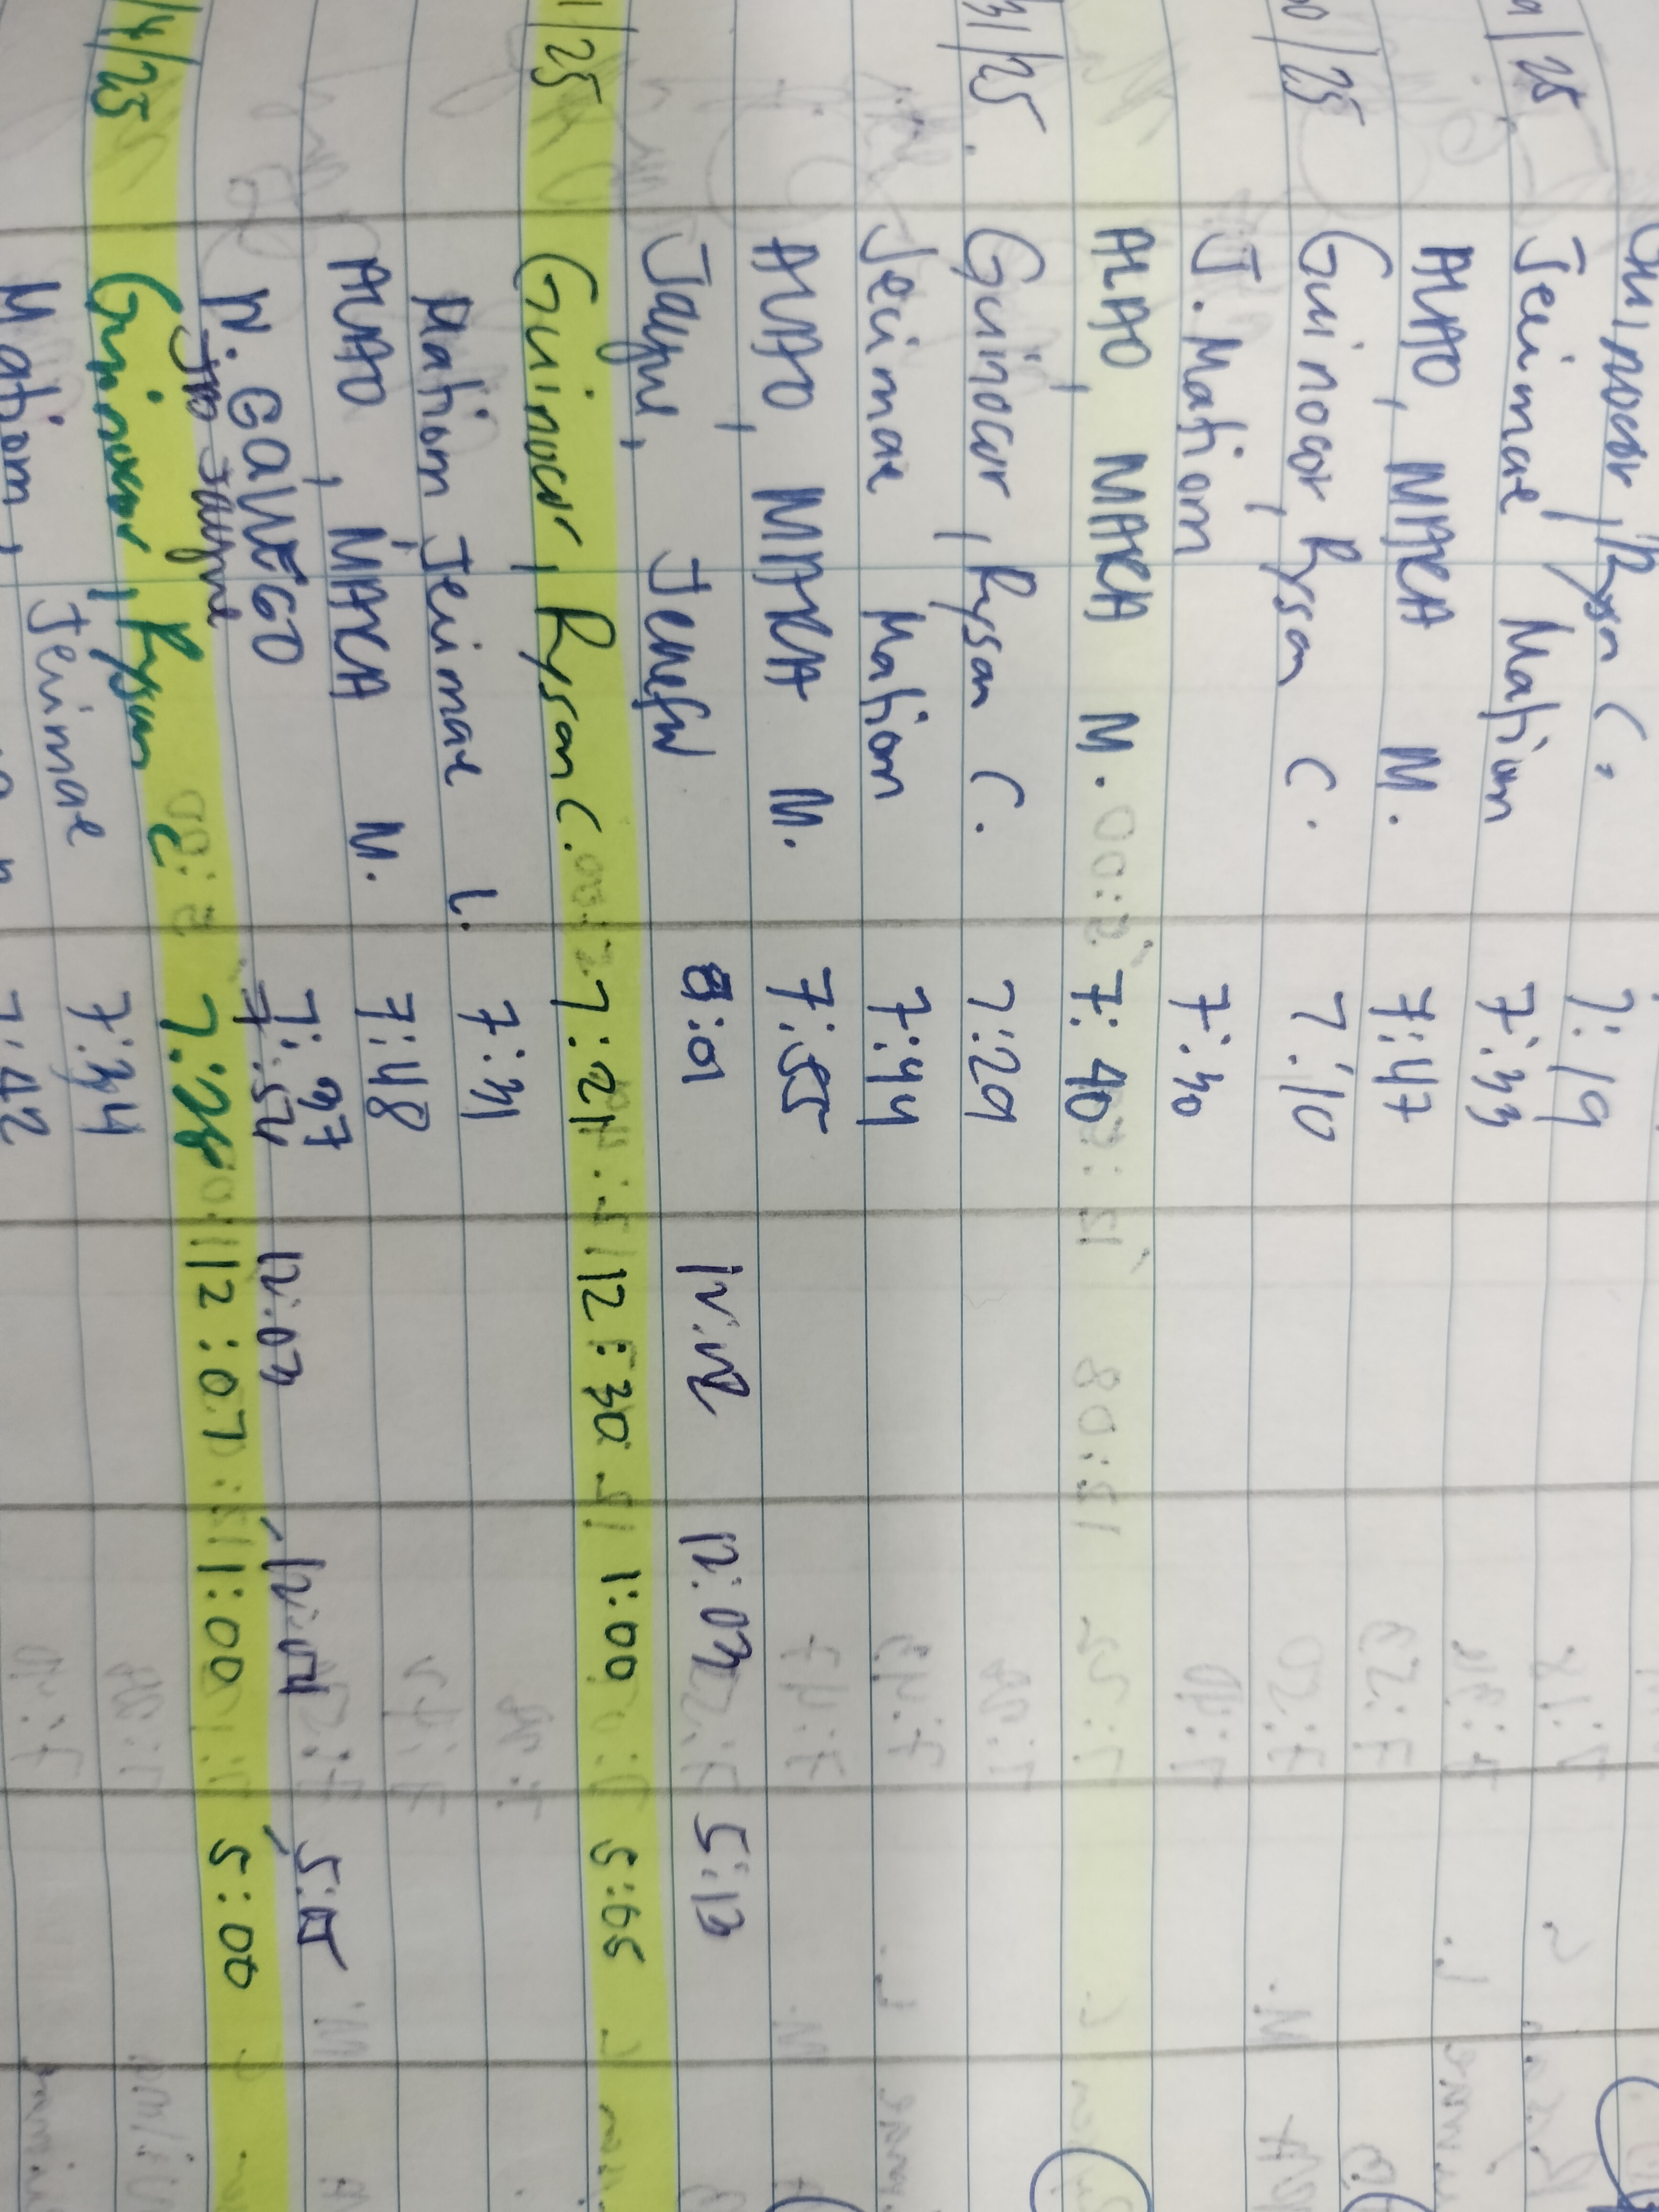 Guinocor, Rysan C. 7:19
9/25 Jeimae Mation 7:33
ALAO, MARA M. 7:47
30/25 Guinocor, Rysan C. 7:10
J. Mation 7:30
ALAO, MARA M. 7:40
31/25. Guinocor, Rysan C. 7:29
Jeimae Mation 7:44
ALAO, MARA M. 7:55
Jayme, Jenefer 8:01 12:02 12:03 5:13
1/25 Guinocor, Rysan C. 7:21 12:30 1:00 5:05
Mation, Jeimae L. 7:31
ALAO, MARA M. 7:48
N. GALLEGO 7:37 12:04
Jayme 7:54 12:03
/4/25 Guinocor, Rysan C 7:28 12:07 1:00 5:00
Mation, Jeimae 7:34
7:42